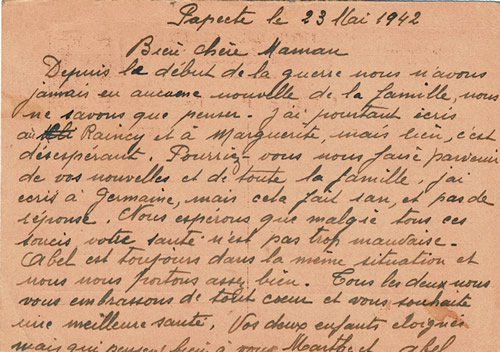 Papeete le 23 Mai 1942
Bien chère Maman
Depuis le début de la guerre nous n'avons
jamais eu aucune nouvelle de la famille, nous
ne savons que penser. J'ai pourtant écris
au Raincy et à Marguerite, mais rien, c'est
désespérant. Pourriez-vous nous faire parvenir
de vos nouvelles et de toute la famille, j'ai
ecris à Germaine, mais cela fait 1 an, et pas de
réponse. Nous esperons que malgré tous ces
soucis votre santé n'est pas trop mauvaise.
Abel est toujours dans la même situation et
nous nous portons assez bien. Tous les deux nous
vous embrassons de tout coeur et vous souhaite
une meilleure santé. Vos deux enfants eloignés
mais qui pensent bien à vous Marthe et Abel